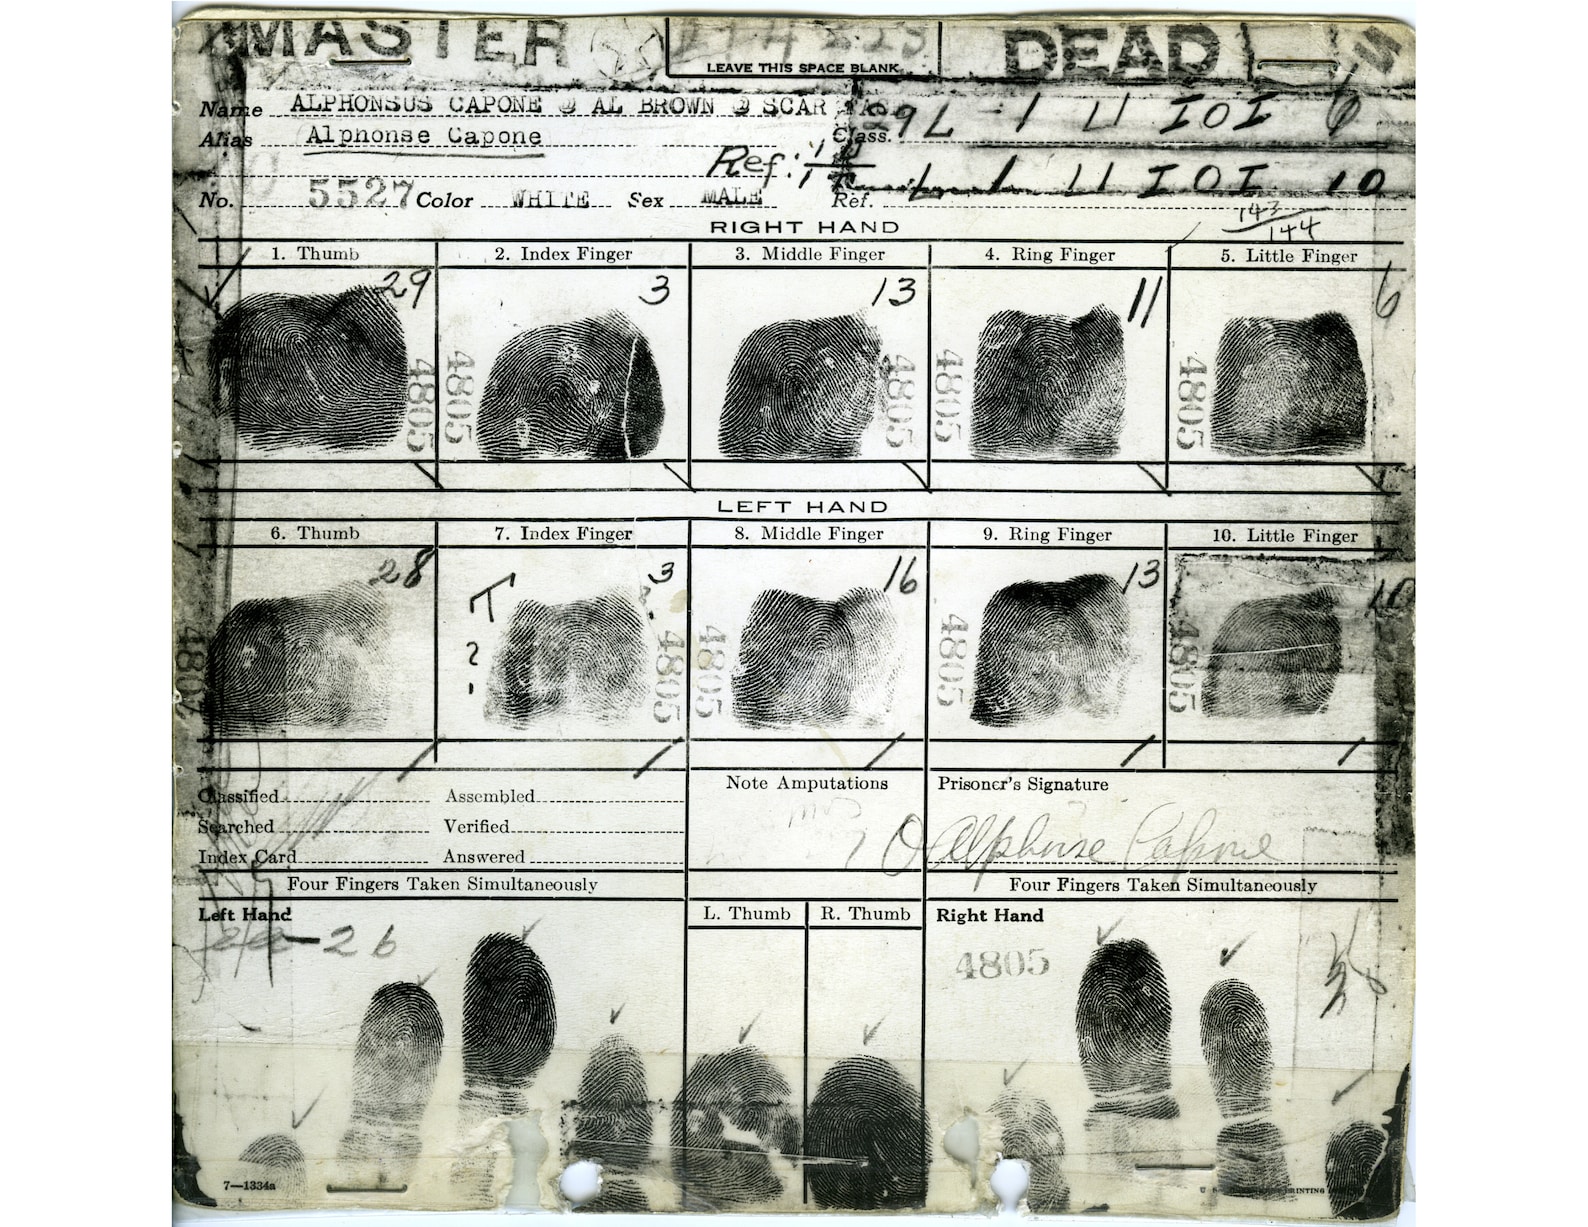 MASTER DEAD
LEAVE THIS SPACE BLANK
Name ALPHONSUS CAPONE @ AL BROWN @ SCAR
Alias Alphonse Capone Class. 29 L 1 U IOI 6
Ref: L 1 U IOI 10
No. 5527 Color WHITE Sex MALE Ref.
143
144
RIGHT HAND
1. Thumb 2. Index Finger 3. Middle Finger 4. Ring Finger 5. Little Finger
29 3 13 11 6
4805 4805 4805 4805 4805
LEFT HAND
6. Thumb 7. Index Finger 8. Middle Finger 9. Ring Finger 10. Little Finger
28 T 3 16 13 10
?
4805 4805 4805 4805 4805
Classified Assembled Note Amputations Prisoner's Signature
Searched Verified
Index Card Answered Alphonse Capone
Four Fingers Taken Simultaneously Four Fingers Taken Simultaneously
Left Hand L. Thumb R. Thumb Right Hand
26
4805
7—1334a PRINTING